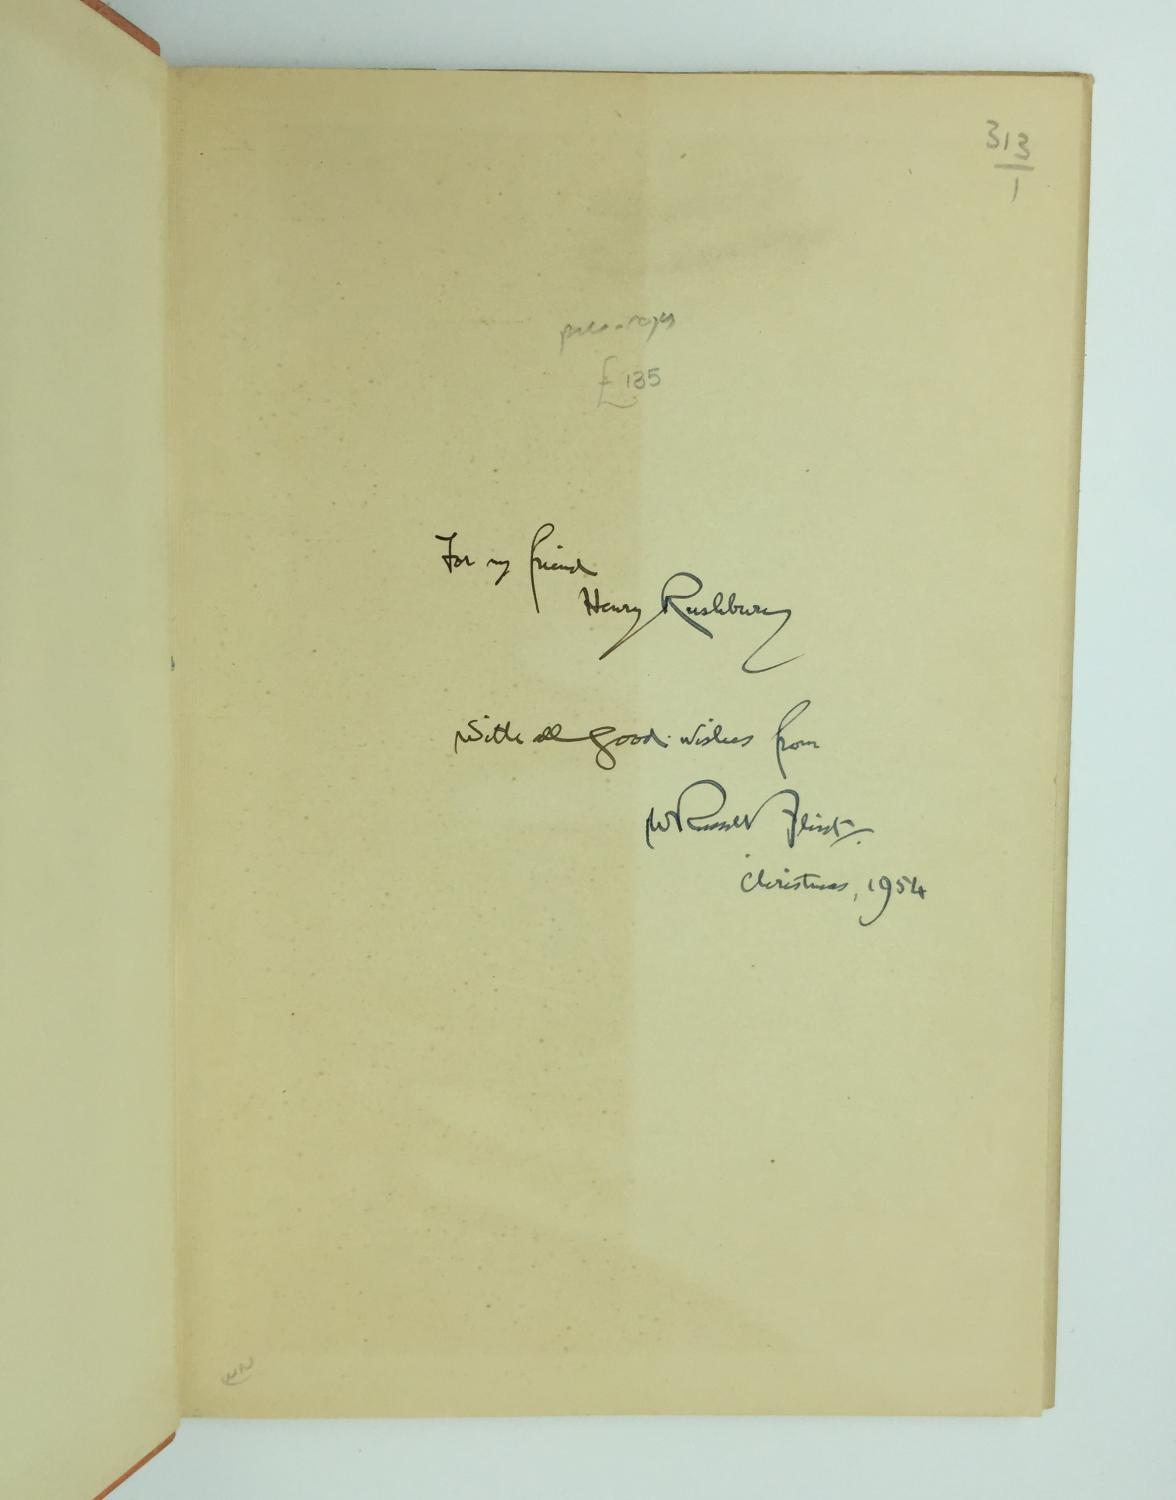 313
1
£135
For my friend
Henry Rushbury
With all good wishes from
W Russell Flint
Christmas, 1954